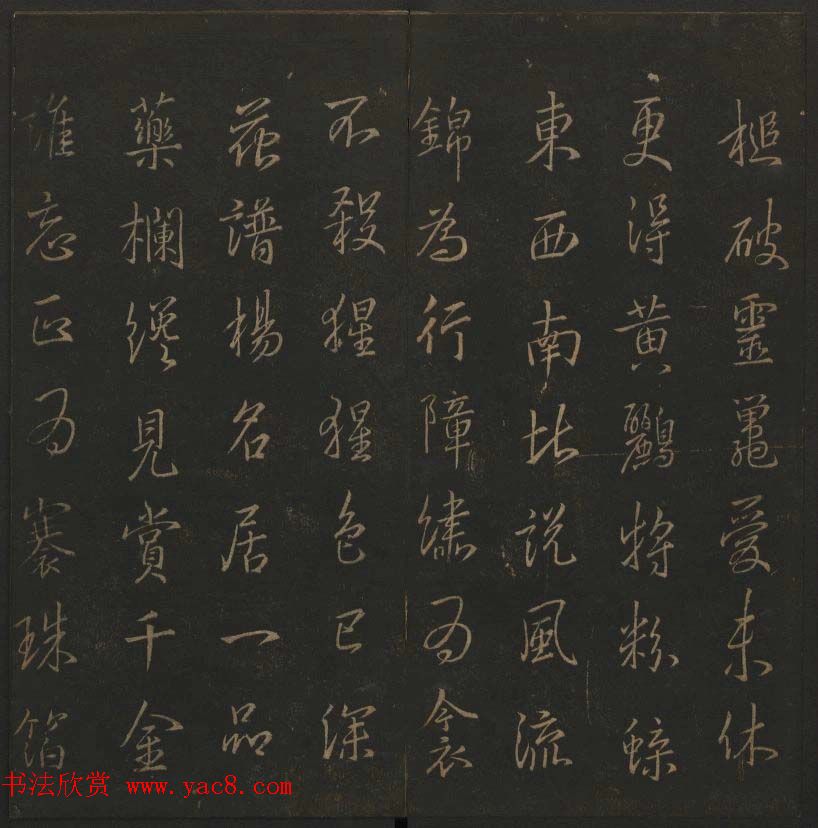 槌破靈鼉愛未休
更得黃鸝將粉蝶
東西南北說風流
錦為行障繡為衾
不殺猩猩色已深
花譜楊名居一品
藥欄纔見賞千金
誰忘正為褰珠箔
书法欣赏 www.yac8.com